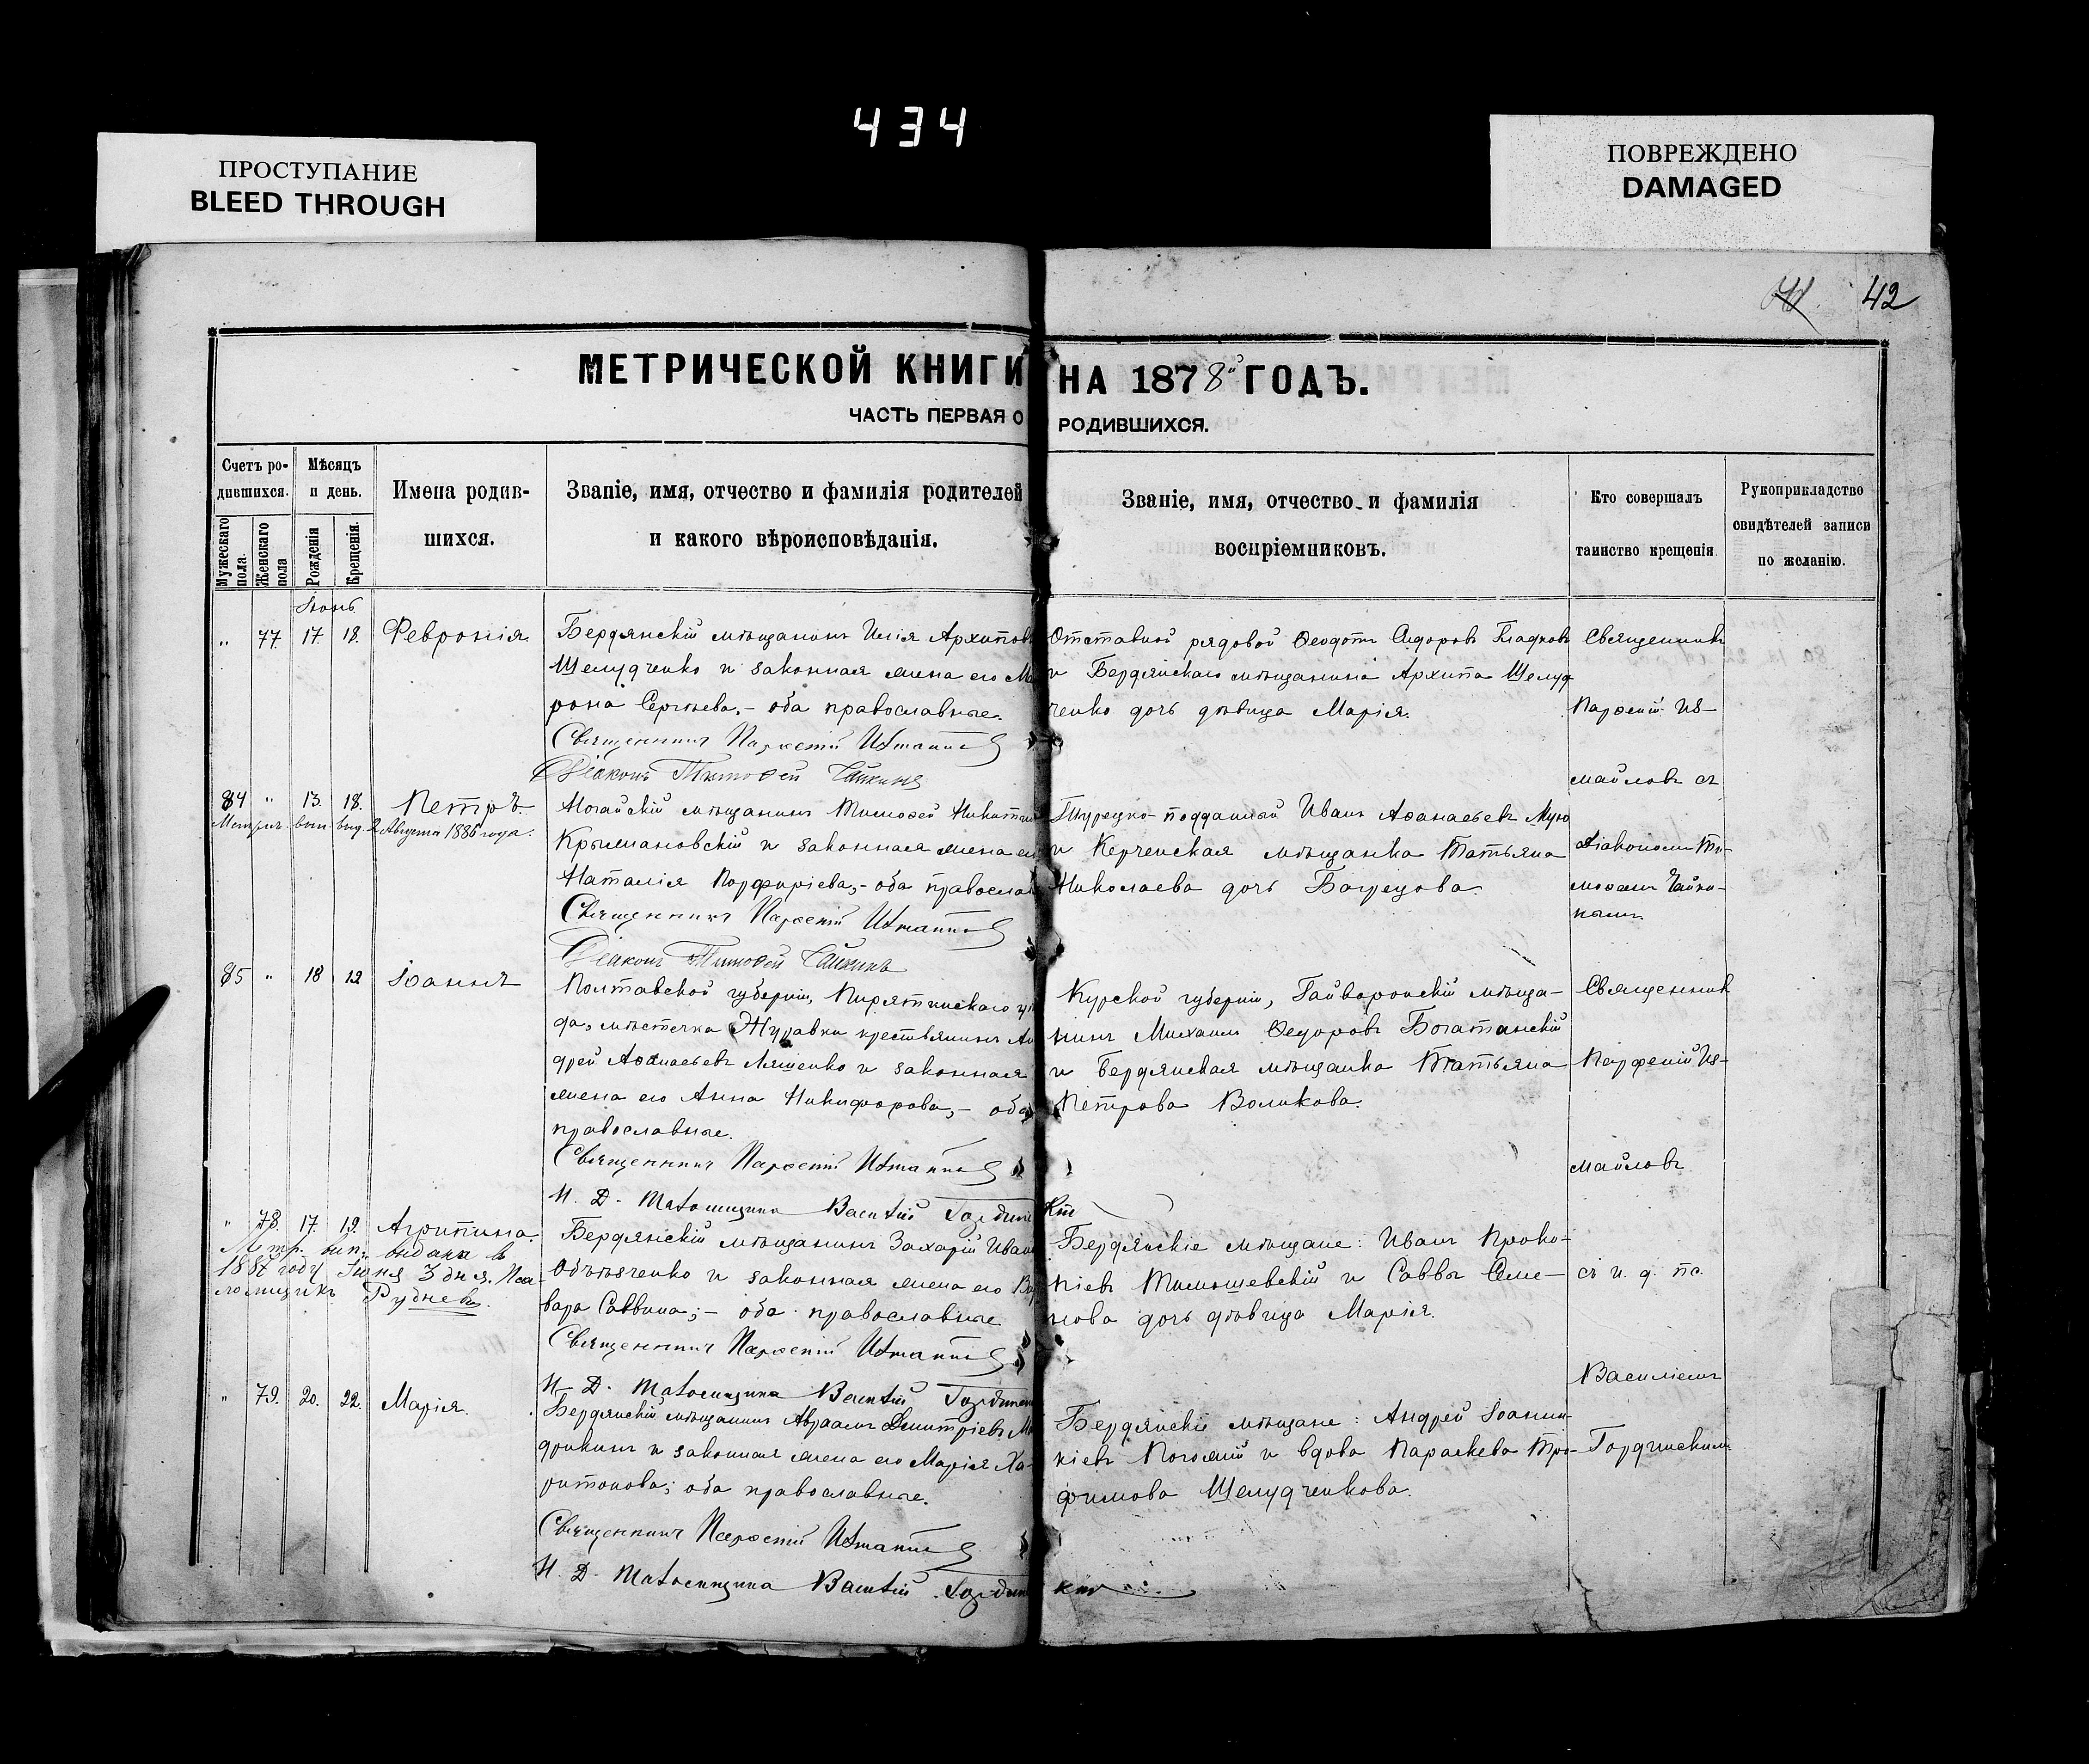 434
ПРОСТУПАНИЕ
BLEED THROUGH
ПОВРЕЖДЕНО
DAMAGED
42
МЕТРИЧЕСКОЙ КНИГИ НА 1878й ГОДЪ.
ЧАСТЬ ПЕРВАЯ О РОДИВШИХСЯ.
Счетъ ро-
дившихся.
Мужескаго пола.
Женскаго пола
Мѣсяцъ
и день.
Рожденія
Крещенія.
Имена родив-
шихся.
Званіе, имя, отчество и фамилія родителей
и какого вѣроисповѣданія.
Званіе, имя, отчество и фамилія
воспріемниковъ.
Кто совершалъ
таинство крещенія
Рукоприкладство
свидѣтелей записи
по желанію.
Іюнь
„ 77. 17. 18. Февронія.
Бердянскій мѣщанинъ Илія Архипов
Шелудченко и законная жена его Ма
рона Сергѣева, – оба православные.
Священникъ Парѳеній Измаиловъ
Діаконъ Тимоѳей Чайкинъ
Отставной рядовой Ѳеодотъ Сидоровъ Гладковъ
и Бердянскаго мѣщанина Архипа Шелуд
ченко дочь дѣвица Марія.
Священникъ
Парѳеній Из-
майловъ съ
Діакономъ Ти-
моѳеемъ Чайки-
нымъ.
84 „ 13. 18. Петръ.
Метрич. вып. выд. 2 Августа 1886 года.
Ногайскій мѣщанинъ Тимоѳей Никитин
Крымановскій и законная жена ег
Наталія Порфиріева, – оба православ
Священникъ Парѳеній Измаиловъ
Діаконъ Тимоѳей Чайкинъ
Турецко-подданный Иванъ Аѳанасьевъ
и Керченская мѣщанка Татьяна
Николаева дочь Багрецова.
85 „ 18 19 Іоаннъ
Полтавской губерніи, Пирятинскаго уѣ
да, мѣстечка Журавки крестьянинъ Ан
дрей Аѳанасьевъ Ляшенко и законная
жена его Анна Никифорова, – оба
православные.
Священникъ Парѳеній Измаиловъ
И. Д. Псаломщика Василій Гординскій
Курской губерніи, Гайворонскій мѣща-
нинъ Михаилъ Ѳедоровъ Богатанскій
и Бердянская мѣщанка Татьяна
Петрова Воликова.
Священник
Парфеній Из-
майловъ
съ и. д. пс.
Василіемъ
Гординскимъ
„ 78. 17. 19. Агрипина.
Метр. вып. выдана в
1887 году Іюня 3 дня. Пса-
ломщикъ Рудневъ.
Бердянскій мѣщанинъ Захарій Иван
Объѣзченко и законная жена его Вар
вара Саввина; – оба православные
Священникъ Парѳеній Измаиловъ
И. Д. Псаломщика Василій Гордински
Бердянскіе мѣщане: Иванъ Проко-
піевъ Тимошевскій и Саввы Семе-
нова дочь дѣвица Марія.
„ 79. 20. 22. Марія.
Бердянскій мѣщанинъ Авраамъ Дмитріевъ Ма
дрикинъ и законная жена его Марія Ха-
ритонова; оба православные.
Священникъ Парѳеній Измаиловъ
И. Д. Псаломщика Василій Гординскій
Бердянскіе мѣщане: Андрей Іоанни-
кіевъ и вдова Параскева Тро-
фимова Шелудченкова.